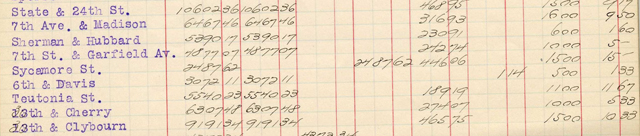 State & 24th St. 1060236 1060236 46895 1500
7th Ave. & Madison 646746 646746 31693 600 950
Sherman & Hubbard 539017 539017 23091 600 160
7th St. & Garfield Av. 487707 487707 24274 1000 5-
Sycamore St. 248762 248762 44606 1500 15-
6th & Davis 307211 307211 114 500 133
Teutonia St. 554023 554023 18919 1100 1167
13th & Cherry 630748 630748 27407 1000 533
13th & Clybourn 919134 919134 46575 1500 1033